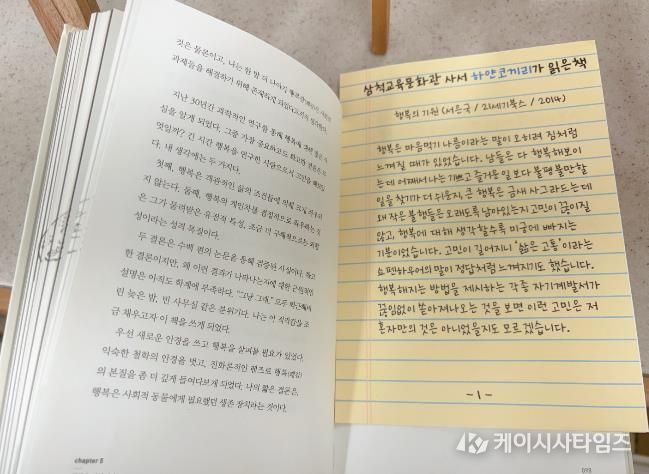 것은 물론이고, 나는 한 발 더 나아가
과제들을 해결하기 위해 존재하게 되었다고까지 생각한다.
지난 30년간 과학적인 연구를 통해 행복에 대한 많은 사
실을 알게 되었다. 그중 가장 중요하고도 확고한 결론은 무
엇일까? 긴 시간 행복을 연구한 사람으로서 고민을 해보았
다. 내 생각에는 두 가지다.
첫째, 행복은 객관적인 삶의 조건들에 의해 크게 좌우되
지 않는다. 둘째, 행복의 개인차를 결정적으로 좌우하는 것
은 그가 물려받은 유전적 특성, 조금 더 구체적으로는 외향
성이라는 성격 특질이다.
두 결론은 수백 편의 논문을 통해 검증된 사실이다. 확고
한 결론이지만, 왜 이런 결과가 나타나는지에 대한 근원적인
설명은 아직도 학계에 부족하다. “그냥 그래.” 모두 퇴근해버
린 늦은 밤, 빈 사무실 같은 분위기다. 나는 이 적막감을 조
금 채우고자 이 책을 쓰게 되었다.
우선 새로운 안경을 쓰고 행복을 살펴볼 필요가 있었다.
익숙한 철학의 안경을 벗고, 진화론적인 렌즈로 행복(쾌감)
의 본질을 좀 더 깊게 들여다보게 되었다. 나의 짧은 결론은,
행복은 사회적 동물에게 필요했던 생존 장치라는 것이다.
chapter 5
삼척교육문화관 사서 하얀코끼리가 읽은책
행복의 기원 (서은국 / 21세기북스 / 2014)
행복은 마음먹기 나름이라는 말이 오히려 짐처럼
느껴질 때가 있었습니다. 남들은 다 행복해보이
는데 어째 나는 기쁘고 즐거운 일보다 불평불만할
일을 찾기가 더 쉬운지, 큰 행복은 금새 사그라드는데
왜 작은 불행들은 오래도록 남아있는지 고민이 끊이질
않고, 행복에 대해 생각할수록 미궁에 빠지는
기분이었습니다. 고민이 길어지니 '삶은 고통'이라는
쇼펜하우어의 말이 정답처럼 느껴지기도 했습니다.
행복해지는 방법을 제시하는 각종 자기계발서가
끊임없이 쏟아져나오는 것을 보면 이런 고민은 저
혼자만의 것은 아니었을지도 모르겠습니다.
-1-
케이시사타임즈